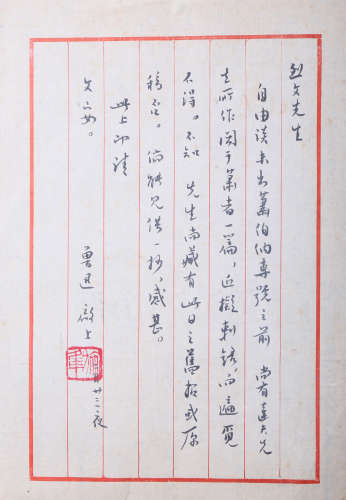 烈文先生
自由談未出蕭伯納專號之前 尚有達夫先
生所作關于蕭者一篇,近擬錄,而遍覓
不得。不知 先生尚藏有此日之舊報或原
稿否。倘能見借一抄,感甚。
此上即請
文安。
魯迅 啟上
夜